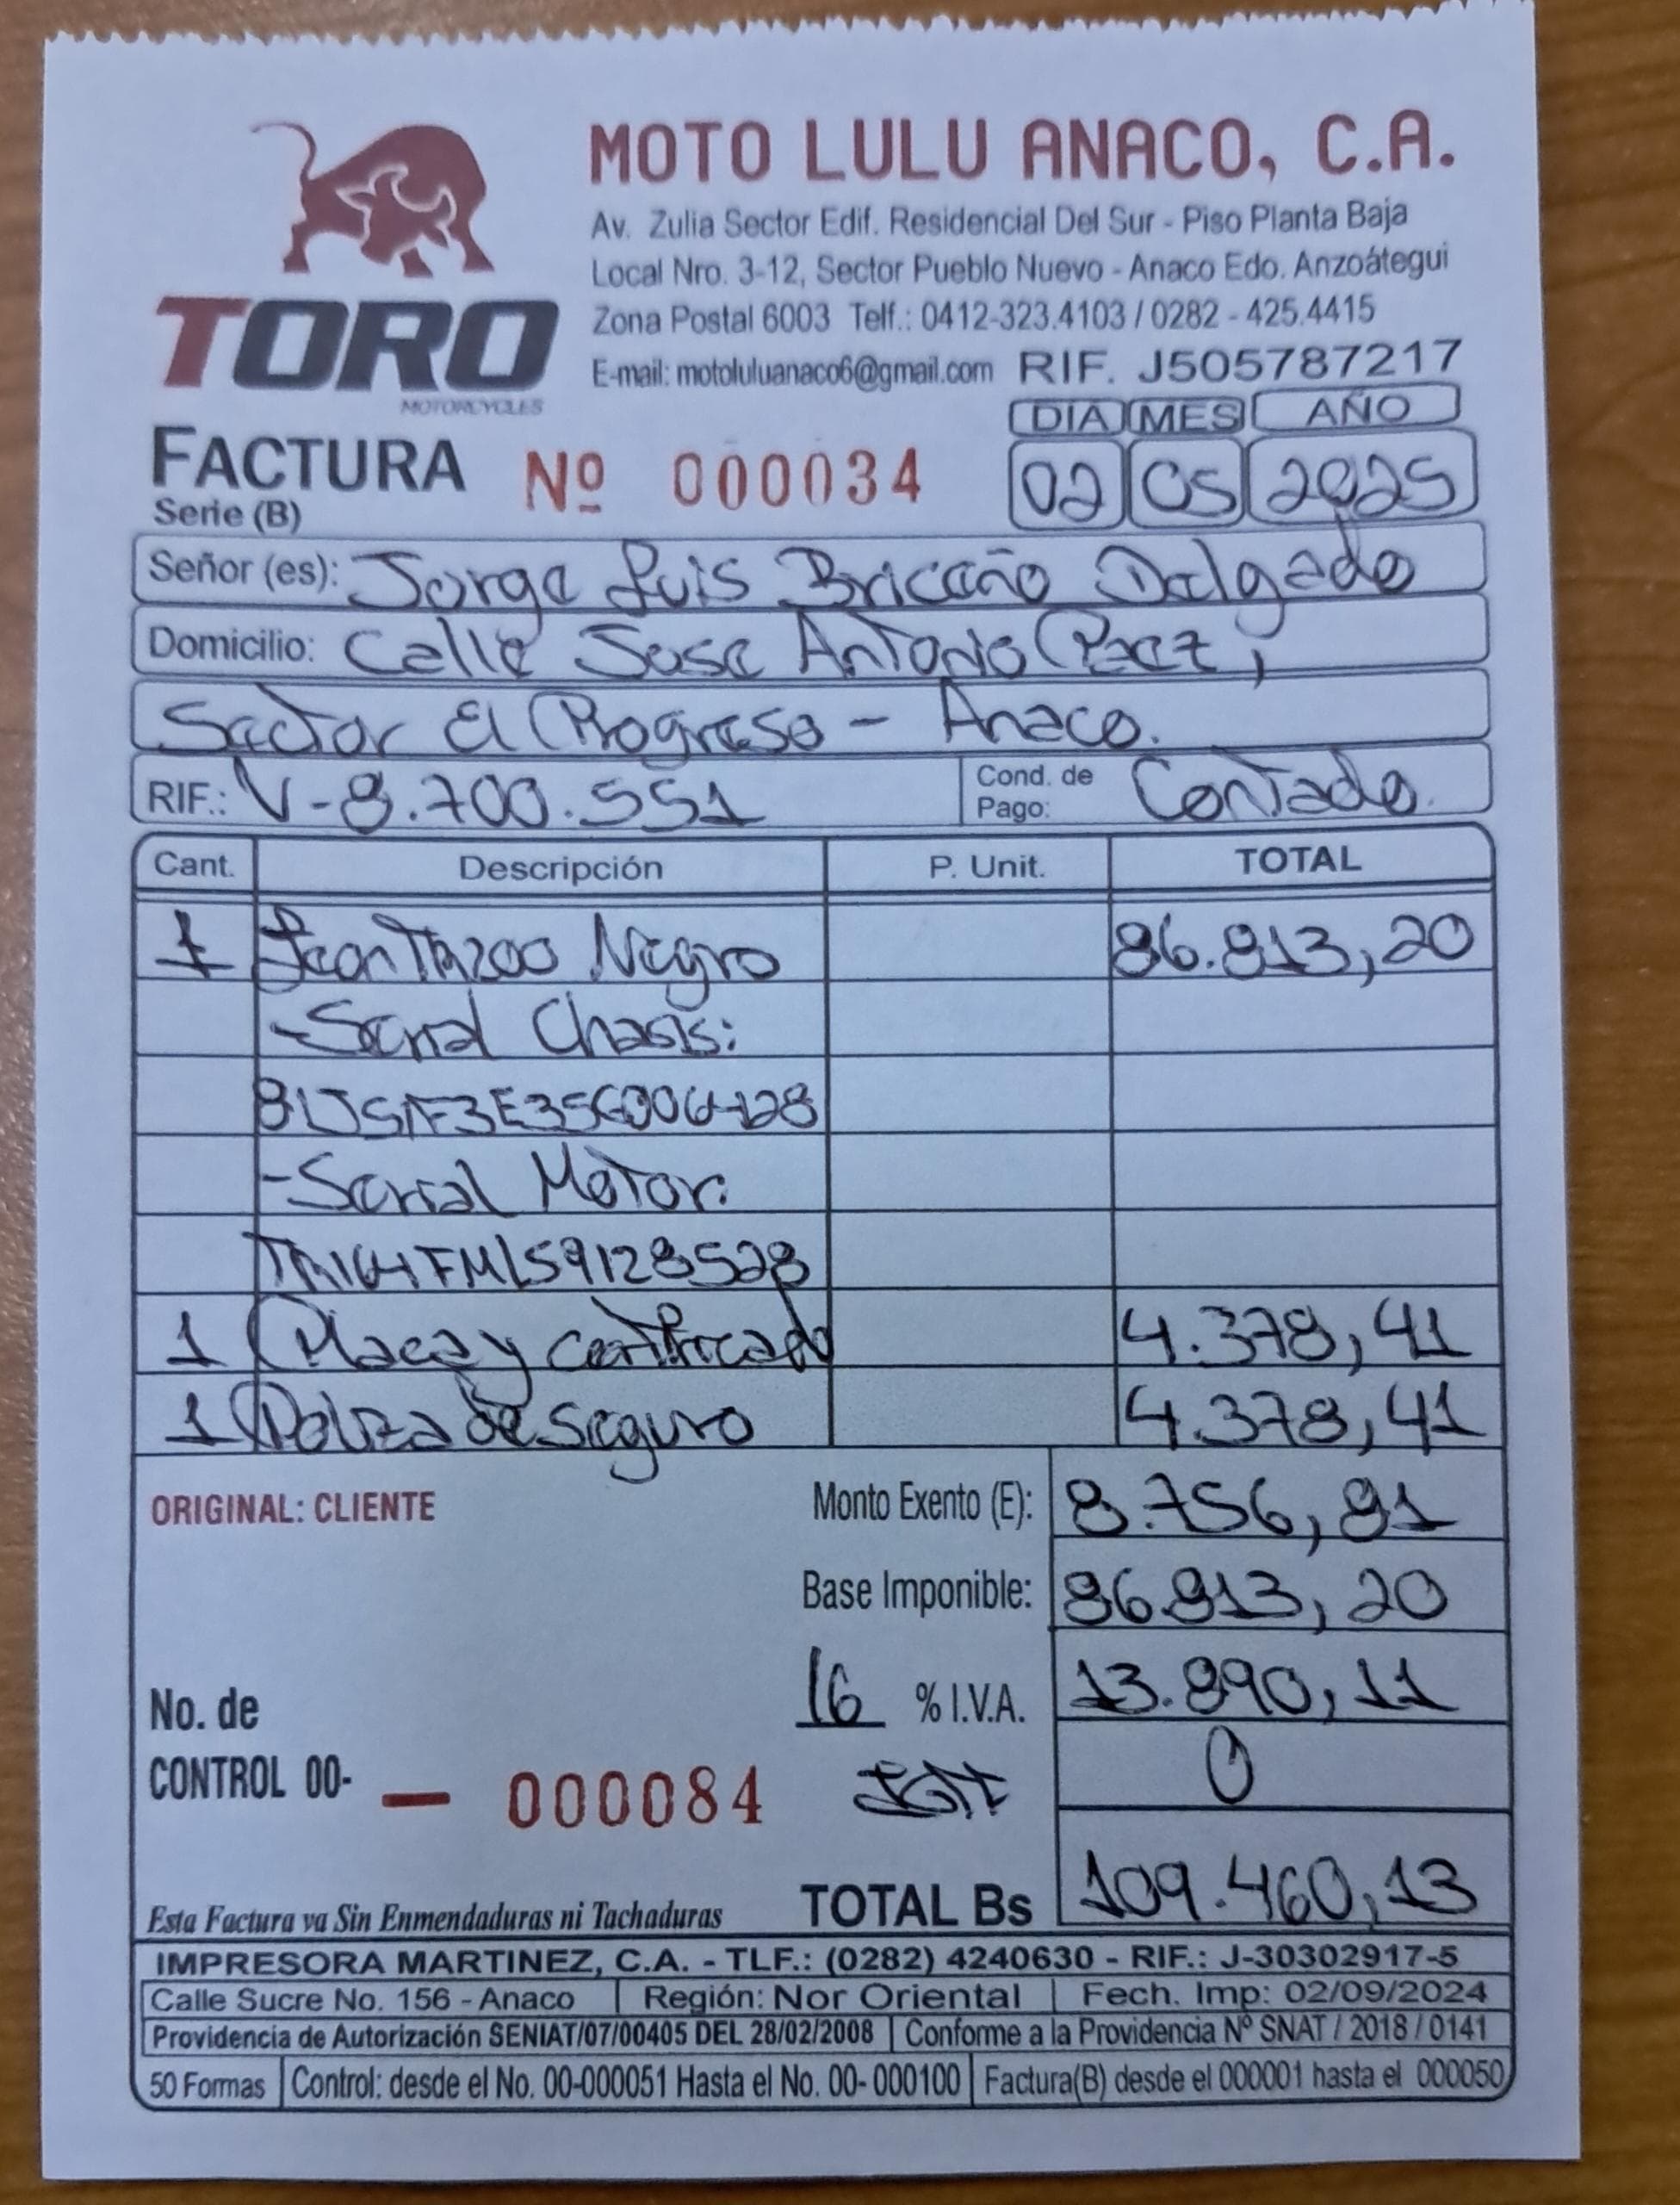 MOTO LULU ANACO, C.A.
Av. Zulia Sector Edif. Residencial Del Sur - Piso Planta Baja
Local Nro. 3-12, Sector Pueblo Nuevo - Anaco Edo. Anzoátegui
Zona Postal 6003 Telf.: 0412-323.4103 / 0282 - 425.4415
E-mail: motoluluanaco6@gmail.com RIF. J505787217
TORO
MOTORCYCLES
DIA MES AÑO
FACTURA Nº 000034 02 05 2025
Serie (B)
Señor (es): Jorge Luis Briceño Delgado
Domicilio: Calle Jose Antonio Paez,
Sector El Progreso - Anaco.
RIF.: V-8.700.551 Cond. de Pago: Contado.
Cant. Descripción P. Unit. TOTAL
1 Negro 86.813,20
-Serial Chasis:
-Serial Motor:
1 Placa y certificado 4.378,41
1 Poliza de seguro 4.378,41
ORIGINAL: CLIENTE Monto Exento (E): 8.756,81
Base Imponible: 86.813,20
16 % I.V.A. 13.890,11
No. de
CONTROL 00- — 000084 0
Esta Factura va Sin Enmendaduras ni Tachaduras TOTAL Bs 109.460,13
IMPRESORA MARTINEZ, C.A. - TLF.: (0282) 4240630 - RIF.: J-30302917-5
Calle Sucre No. 156 - Anaco Región: Nor Oriental Fech. Imp: 02/09/2024
Providencia de Autorización SENIAT/07/00405 DEL 28/02/2008 Conforme a la Providencia Nº SNAT / 2018 / 0141
50 Formas Control: desde el No. 00-000051 Hasta el No. 00- 000100 Factura(B) desde el 000001 hasta el 000050